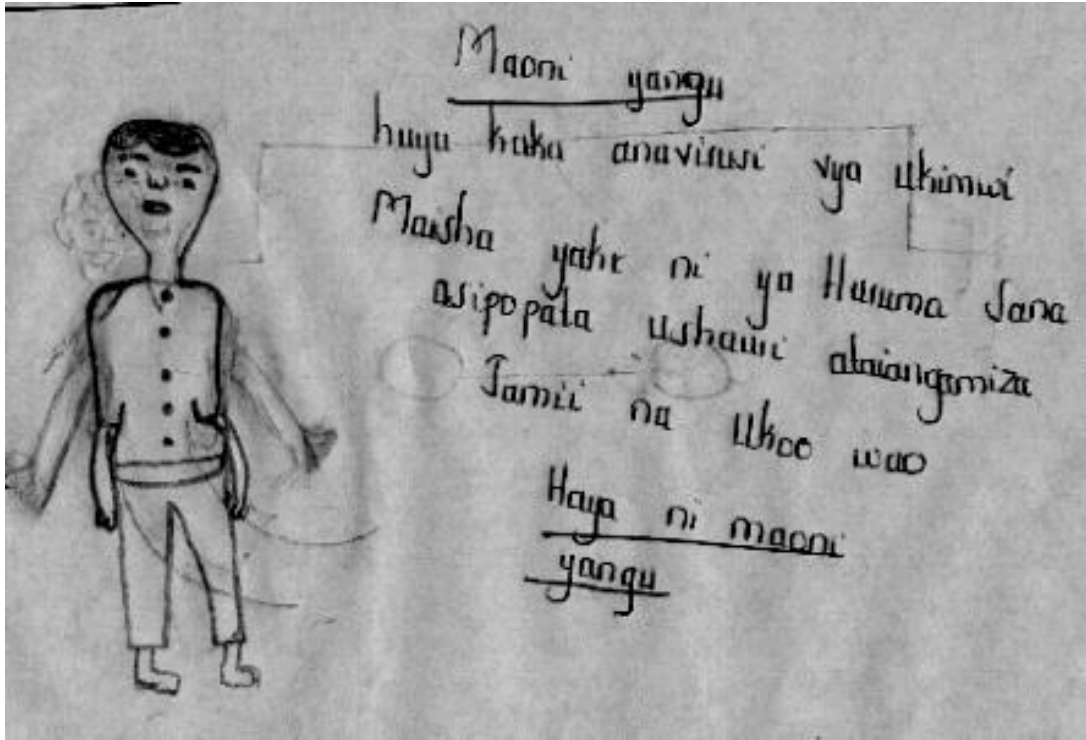 Maoni yangu
huyu kaka anavirusi vya Ukimwi
Maisha yake ni ya Huruma Sana
asipopata ushauri ataiangamiza
Jamii na Ukoo wao
Haya ni maoni
yangu